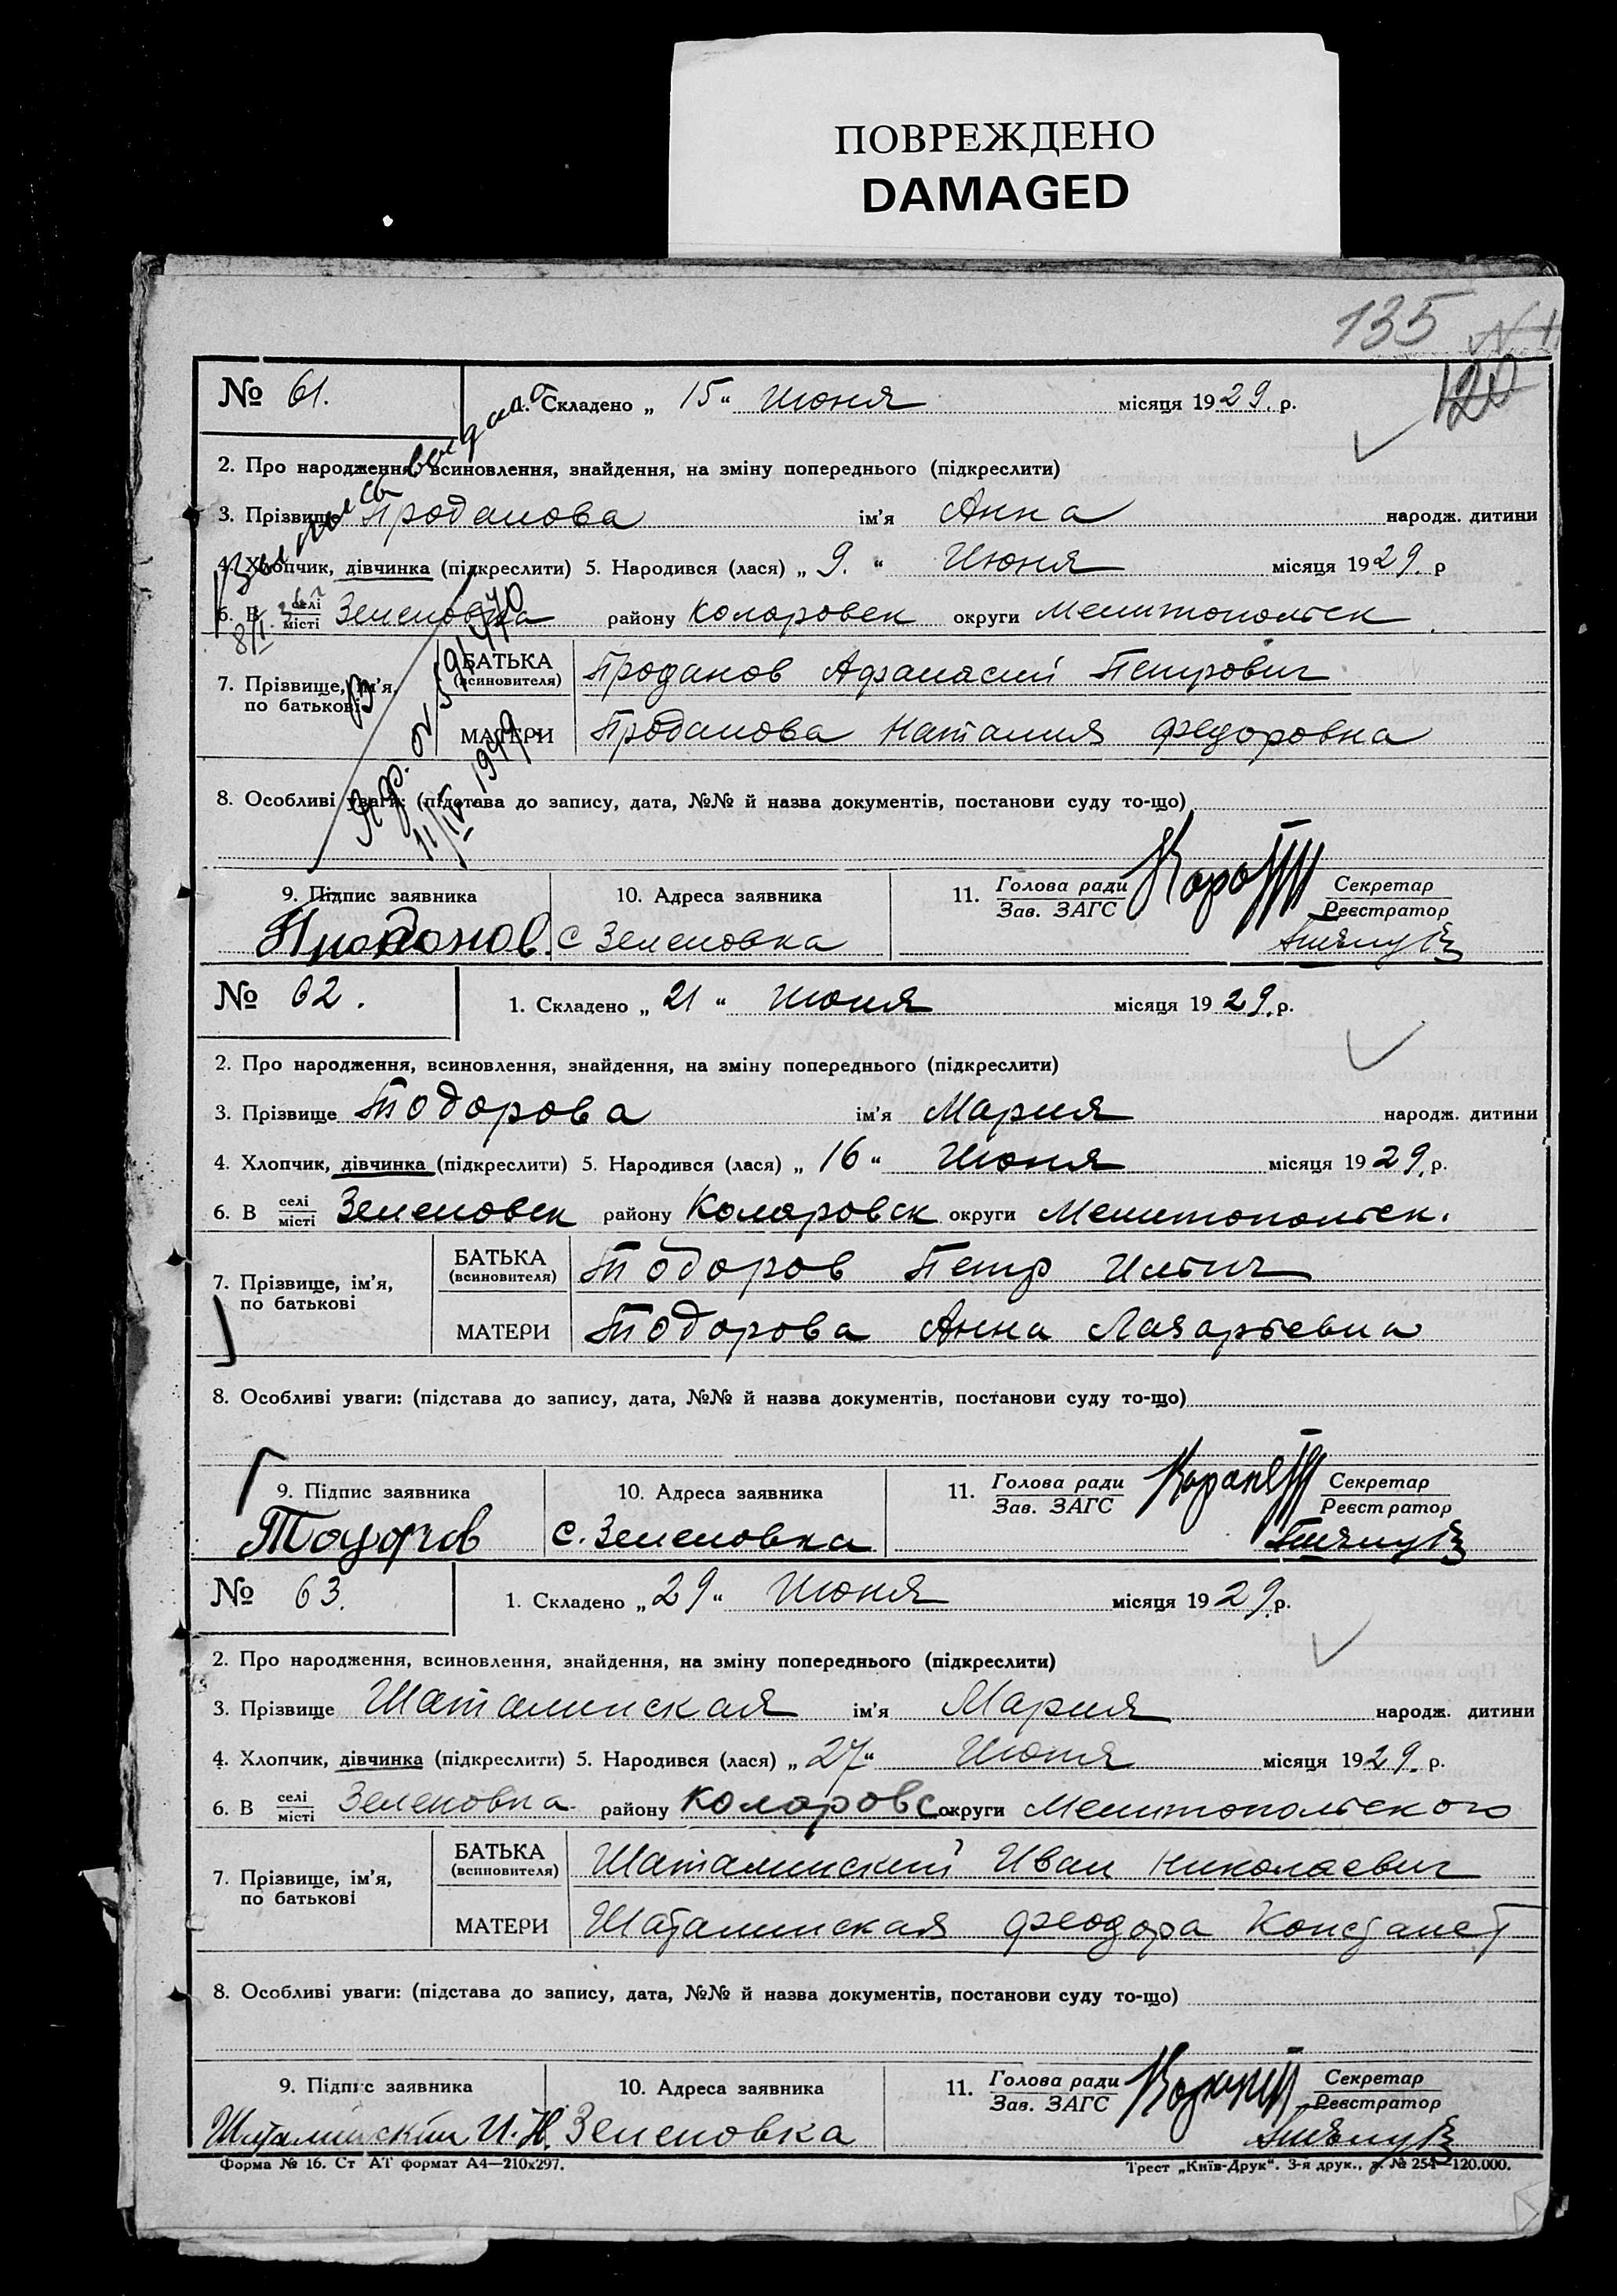 ПОВРЕЖДЕНО
DAMAGED
135
120
№ 61. 1. Складено „ 15 “ Июня місяця 1929. р.
2. Про народження, всиновлення, знайдення, на зміну попереднього (підкреслити)
3. Прізвище Проданова ім'я Анна народж. дитини
4. Хлопчик, дівчинка (підкреслити) 5. Народився (лася) „ 9. “ Июня місяця 1929. р
6. В селі місті Зеленовка району Коларовск округи Мелитопольск.
7. Прізвище, ім'я, по батькові
БАТЬКА (всиновителя) Проданов Афанасий Петрович
МАТЕРИ Проданова Наталия Федоровна
8. Особливі уваги: (підстава до запису, дата, №№ й назва документів, постанови суду то-що)
выдана
11/IV 1949
9. Підпис заявника 10. Адреса заявника 11. Голова ради Зав. ЗАГС Секретар Реєстратор
Проданов. с Зеленовка
№ 62. 1. Складено „ 21 “ Июня місяця 1929. р.
2. Про народження, всиновлення, знайдення, на зміну попереднього (підкреслити)
3. Прізвище Тодорова ім'я Мария народж. дитини
4. Хлопчик, дівчинка (підкреслити) 5. Народився (лася) „ 16 “ Июня місяця 1929. р.
6. В селі місті Зеленовск району Коларовск округи Мелитопольск.
7. Прізвище, ім'я, по батькові
БАТЬКА (всиновителя) Тодоров Петр Ильич
МАТЕРИ Тодорова Анна Лазарьевна
8. Особливі уваги: (підстава до запису, дата, №№ й назва документів, постанови суду то-що)
9. Підпис заявника 10. Адреса заявника 11. Голова ради Зав. ЗАГС Секретар Реєстратор
Тодоров с. Зеленовка
№ 63. 1. Складено „ 29 “ Июня місяця 1929. р.
2. Про народження, всиновлення, знайдення, на зміну попереднього (підкреслити)
3. Прізвище Шаталинская ім'я Мария народж. дитини
4. Хлопчик, дівчинка (підкреслити) 5. Народився (лася) „ 27 “ Июня місяця 1929. р.
6. В селі місті Зеленовка району Коларовс округи Мелитопольского
7. Прізвище, ім'я, по батькові
БАТЬКА (всиновителя) Шаталинский Иван Николаевич
МАТЕРИ Шаталинская Феодора Констант
8. Особливі уваги: (підстава до запису, дата, №№ й назва документів, постанови суду то-що)
9. Підпис заявника 10. Адреса заявника 11. Голова ради Зав. ЗАГС Секретар Реєстратор
Шаталинский И. Н. Зеленовка
Форма № 16. Ст АТ формат А4—210х297. Трест „Київ-Друк“. 3-я друк., з. № 254—120.000.